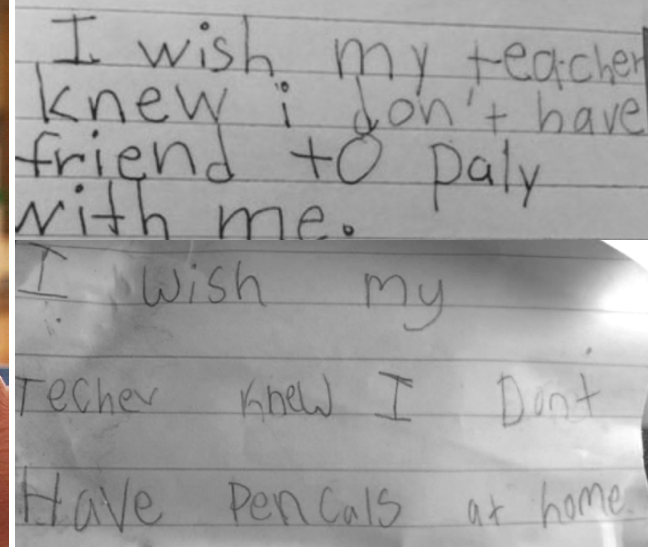 I wish my teacher
knew i don't have
friend to paly
with me.
I wish my
Techer knew I Dont
Have Pencals at home.